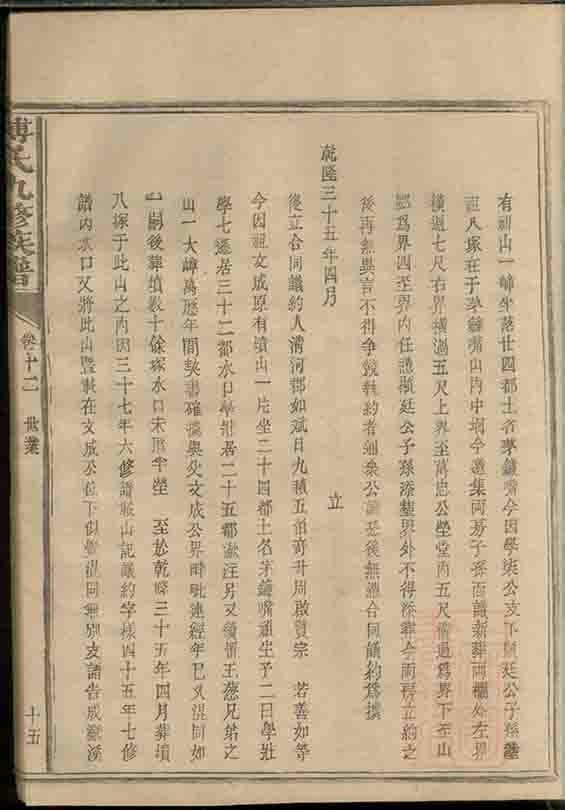 有祖山一嶂坐落廿四都土名茅鐮嘴今因學柒公支下廷公子孫
祖八塚在于茅鐮嘴山內中埛今邀集兩房子孫面議新葬兩棺外左界
橫過七尺右界橫過五尺上界至公塋堂內五尺過為界下至山
為界四至界內任憑廷公子孫添塟界外不得添葬今兩房立約之
後再無異言不得爭競執約者通眾公議恐後無憑合同議約為據
乾隆三十五年四月 立
復立合同議約人清河郡如斌日九積五伯奇升周啟賢宗 若善如等
今因祖文成原有墳山一片坐二十四都土名茅鐮嘴通生子二曰學壯
學七遷居三十二都水口學壯居二十五都汪另又續恆王蔡兄弟之
山一大嶂萬歷年間契書確據與父文成公界時毗連經年已久混同如
一嗣後葬墳數十餘塚水口未塟半塋 至於乾隆三十五年四月葬墳
八塚于此山之內因三十七年六修譜山記議約字樣四十五年七修
譜內水口又將此山暨載在文成公位下似混同無別支譜告成
傅氏九修族譜
卷十二 世業
十五